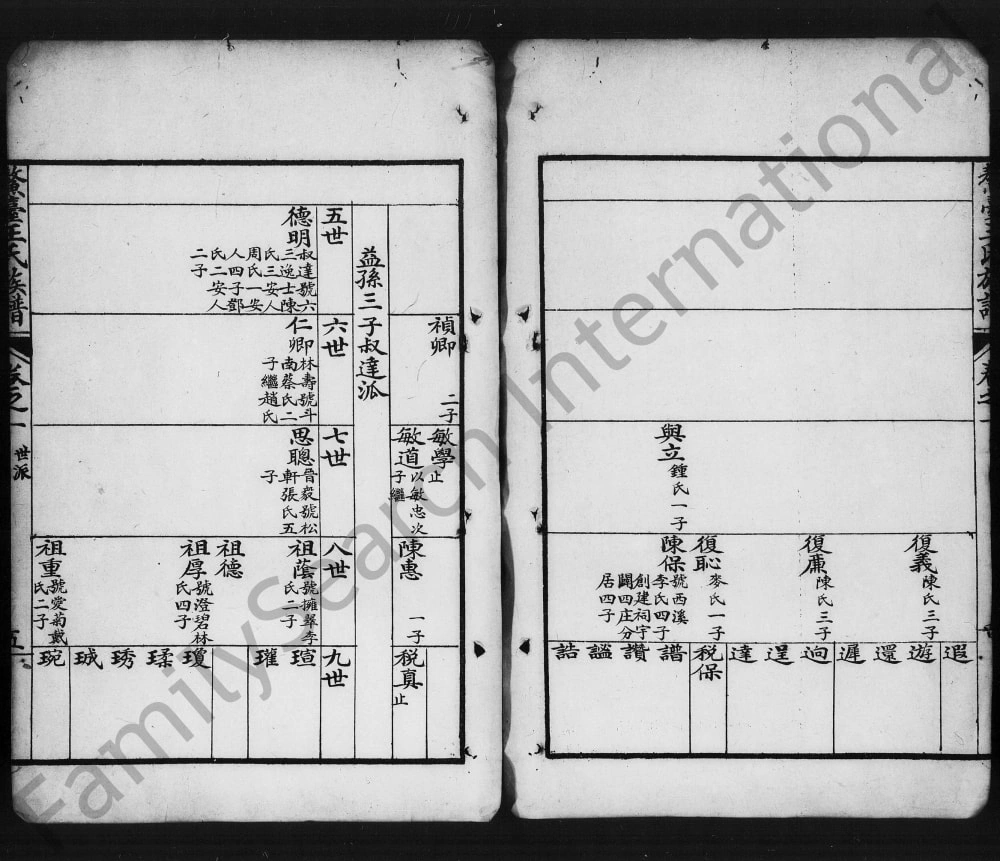 與立 鍾氏一子
復義 陳氏三子
復廉 陳氏三子
復恥 麥氏一子
陳保 號西溪李氏四子創建祠宇闢四庄分居四子
遐
遊
還
遲
逈
逞
達
税保
譜
讚
謐
誥
禎卿 二子
敏學 止
敏道 以敏忠次子繼
陳惠 一子
税真 止
益孫三子叔達派
五世
六世
七世
八世
九世
德明 叔達號六三逸士陳氏三安人周氏一安人四子鄧氏二安人二子
仁卿 林壽號斗南蔡氏二子繼趙氏
思聰 晉毅號松軒張氏五子
祖蔭 號擁翠李氏二子
祖德
祖厚 號澄碧林氏四子
祖重 號愛菊戴氏二子
瑄
瓘
瓊
瑈
琇
珹
琬
鰲臺王氏族譜
卷之一
世派
五
FamilySearch International